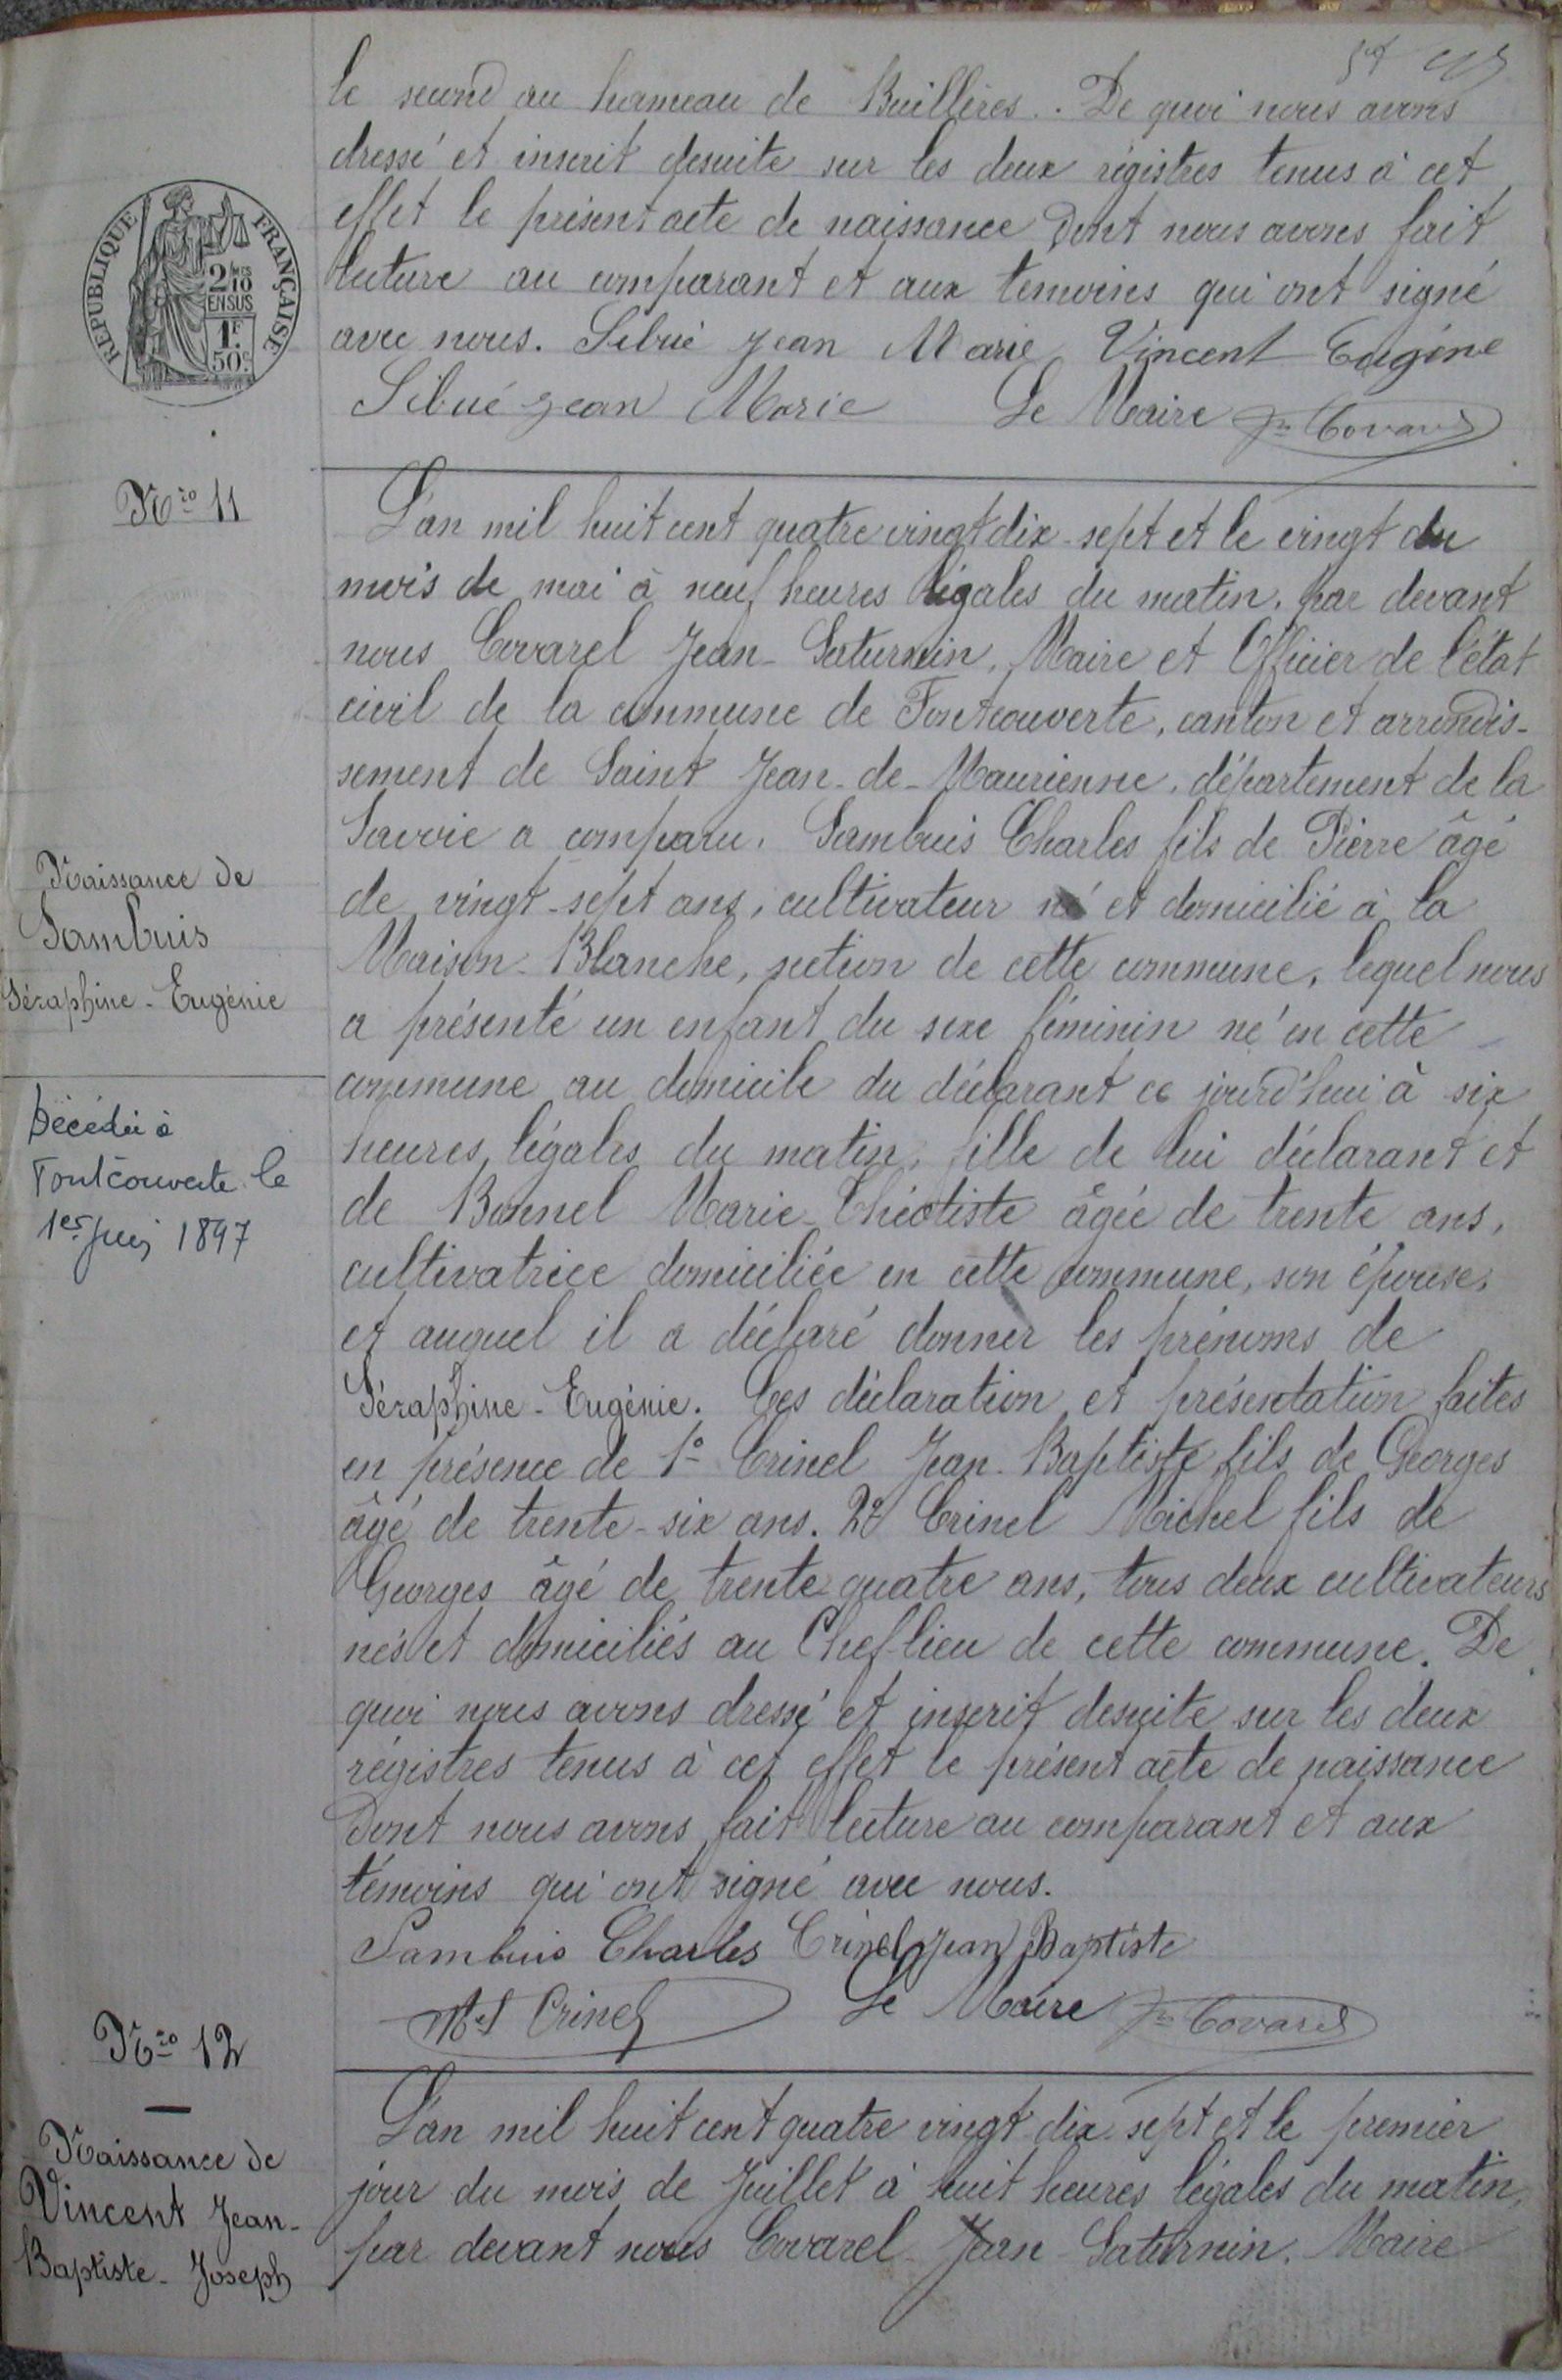 le second au hameau de Buillères. De quoi nous avons
dressé et inscrit desuite sur les deux régistres tenus à cet
effet le présent acte de naissance dont nous avons fait
lecture au comparant et aux temoins qui ont signé
avec nous. Sibué Jean Marie Vincent Eugéne
Sibué Jean Marie Le Maire Jn Covarel
REPUBLIQUE FRANÇAISE
2/10
EN SUS
1F.
50c.
Nro 11
Naissance de
Sambuis
Séraphine-Eugénie
Décédée à
Fontcouverte le
1er juin 1897
L'an mil huit cent quatre vingt dix-sept et le vingt du
mois de mai à neuf heures légales du matin, par devant
nous Covarel Jean-Saturnin, Maire et Officier de l'état
civil de la commune de Fontcouverte, canton et arrondis-
sement de Saint Jean-de-Maurienne, département de la
Savoie a comparu, Sambuis Charles fils de Pierre âgé
de vingt-sept ans, cultivateur né et domicilié à la
Maison-Blanche, section de cette commune, lequel nous
a présenté un enfant du sexe féminin né en cette
commune au domicile du déclarant ce jourd'hui à six
heures légales du matin, fille de lui déclarant et
de Bonnel Marie-Théotiste âgée de trente ans,
cultivatrice domiciliée en cette commune, son épouse,
et auquel il a déclaré donner les prénoms de
Séraphine-Eugénie. Ces déclaration et présentation faites
en présence de 1° Crinel Jean-Baptiste fils de Georges
âgé de trente-six ans. 2° Crinel Michel fils de
Georges âgé de trente quatre ans, tous deux cultivateurs
nés et domiciliés au Chef-lieu de cette commune. De
quoi nous avons dressé et inscrit desuite sur les deux
régistres tenus à cet effet le présent acte de naissance
dont nous avons fait lecture au comparant et aux
témoins qui ont signé avec nous.
Sambuis Charles Crinel Jean Baptiste
Mel Crinel Le Maire Jn Covarel
Nro 12
Naissance de
Vincent Jean-
Baptiste-Joseph
L'an mil huit cent quatre vingt-dix-sept et le premier
jour du mois de Juillet à huit heures légales du matin,
par devant nous Covarel Jean-Saturnin, Maire